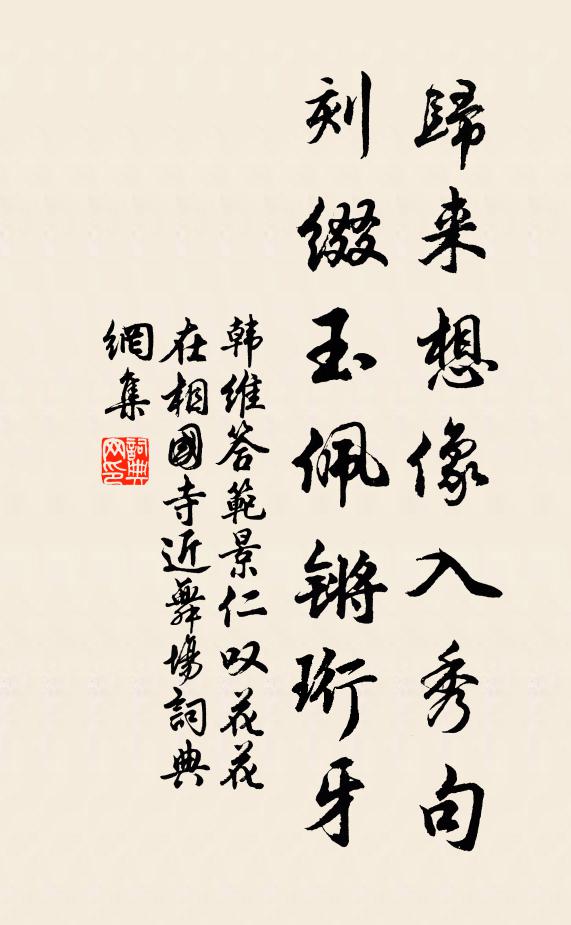 歸来想像入秀句
刻缀玉佩锵珩牙
韩维答範景仁叹花花
在相國寺近舞場詞典
網集
詞典
网印